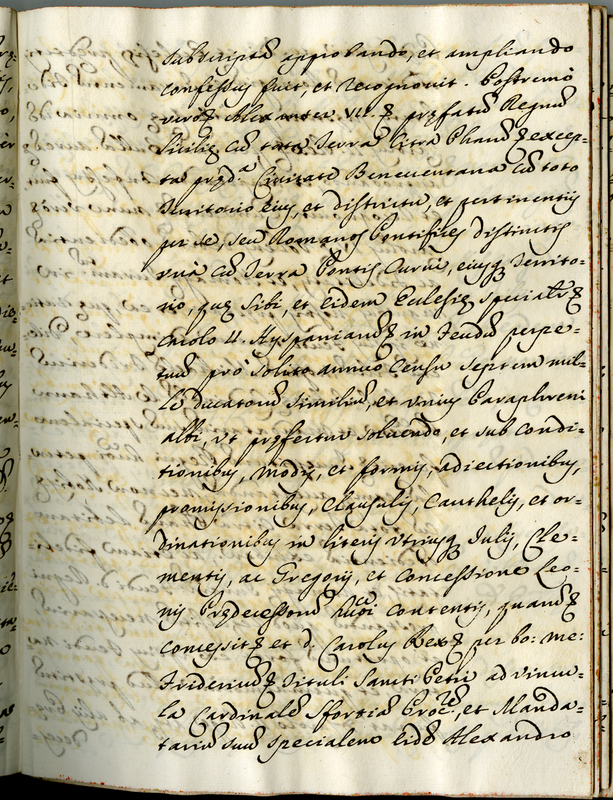 subscriptã approbando, et ampliando
confessus fuit, et recognovit. Postremò
verò Alexander VII. præfatũ Regnũ
Siciliæ cũ tota Terra Citra Pharũ excep-
ta præd.ª Civitate Beneventana cũ toto
Territorio eius, et districtu, et pertinentijs
per se, seu Romanos Pontifices distinctis
unà cũ Terra Pontis Curvi, eiusq; Territo-
rio, quæ sibi, et eidem Ecclesiæ
Carolo 4. Hyspaniarũ in Feudũ perpe-
tuũ prò soluto annuo Censu septem mil-
le ducatorũ similiũ, et unius Paraphreni
albi, ut præfertur solvendo, et sub Condi-
tionibus, Modis, et formis, adiectionibus,
promissionibus, Clausulis, Cauthelis, et or-
dinationibus in literis utriusq; Julij, Cle-
mentis, ac Gregorij, et Concessione Leo-
nis Prædecessorũ contentis,
concessit et d. Carolus Rex per bo: me:
Fridericũ Tituli Sancti Petri ad vincu-
la Cardinalẽ Sfortiã Proc.rẽ, et Manda-
tariũ suũ specialem eidẽ Alexandro